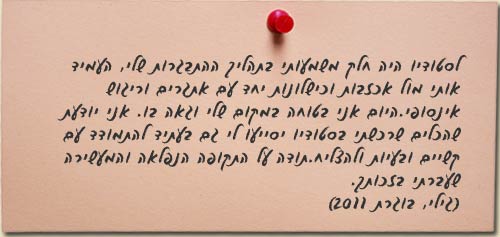 לסטודיו היה חלק משמעותי בתהליך ההתבגרות שלי, העמיד
אותי מול אכזבות וכישלונות יחד עם אתגרים וריגוש
אינסופי.היום אני בטוחה במקום שלי וגאה בו. אני יודעת
שהכלים שרכשתי בסטודיו יסייעו לי גם בעתיד להתמודד עם
קשיים ובעיות ולהצליח.תודה על התקופה הנפלאה והמעשירה
שעברתי בזכותך.
(גילי, בוגרת 2011)